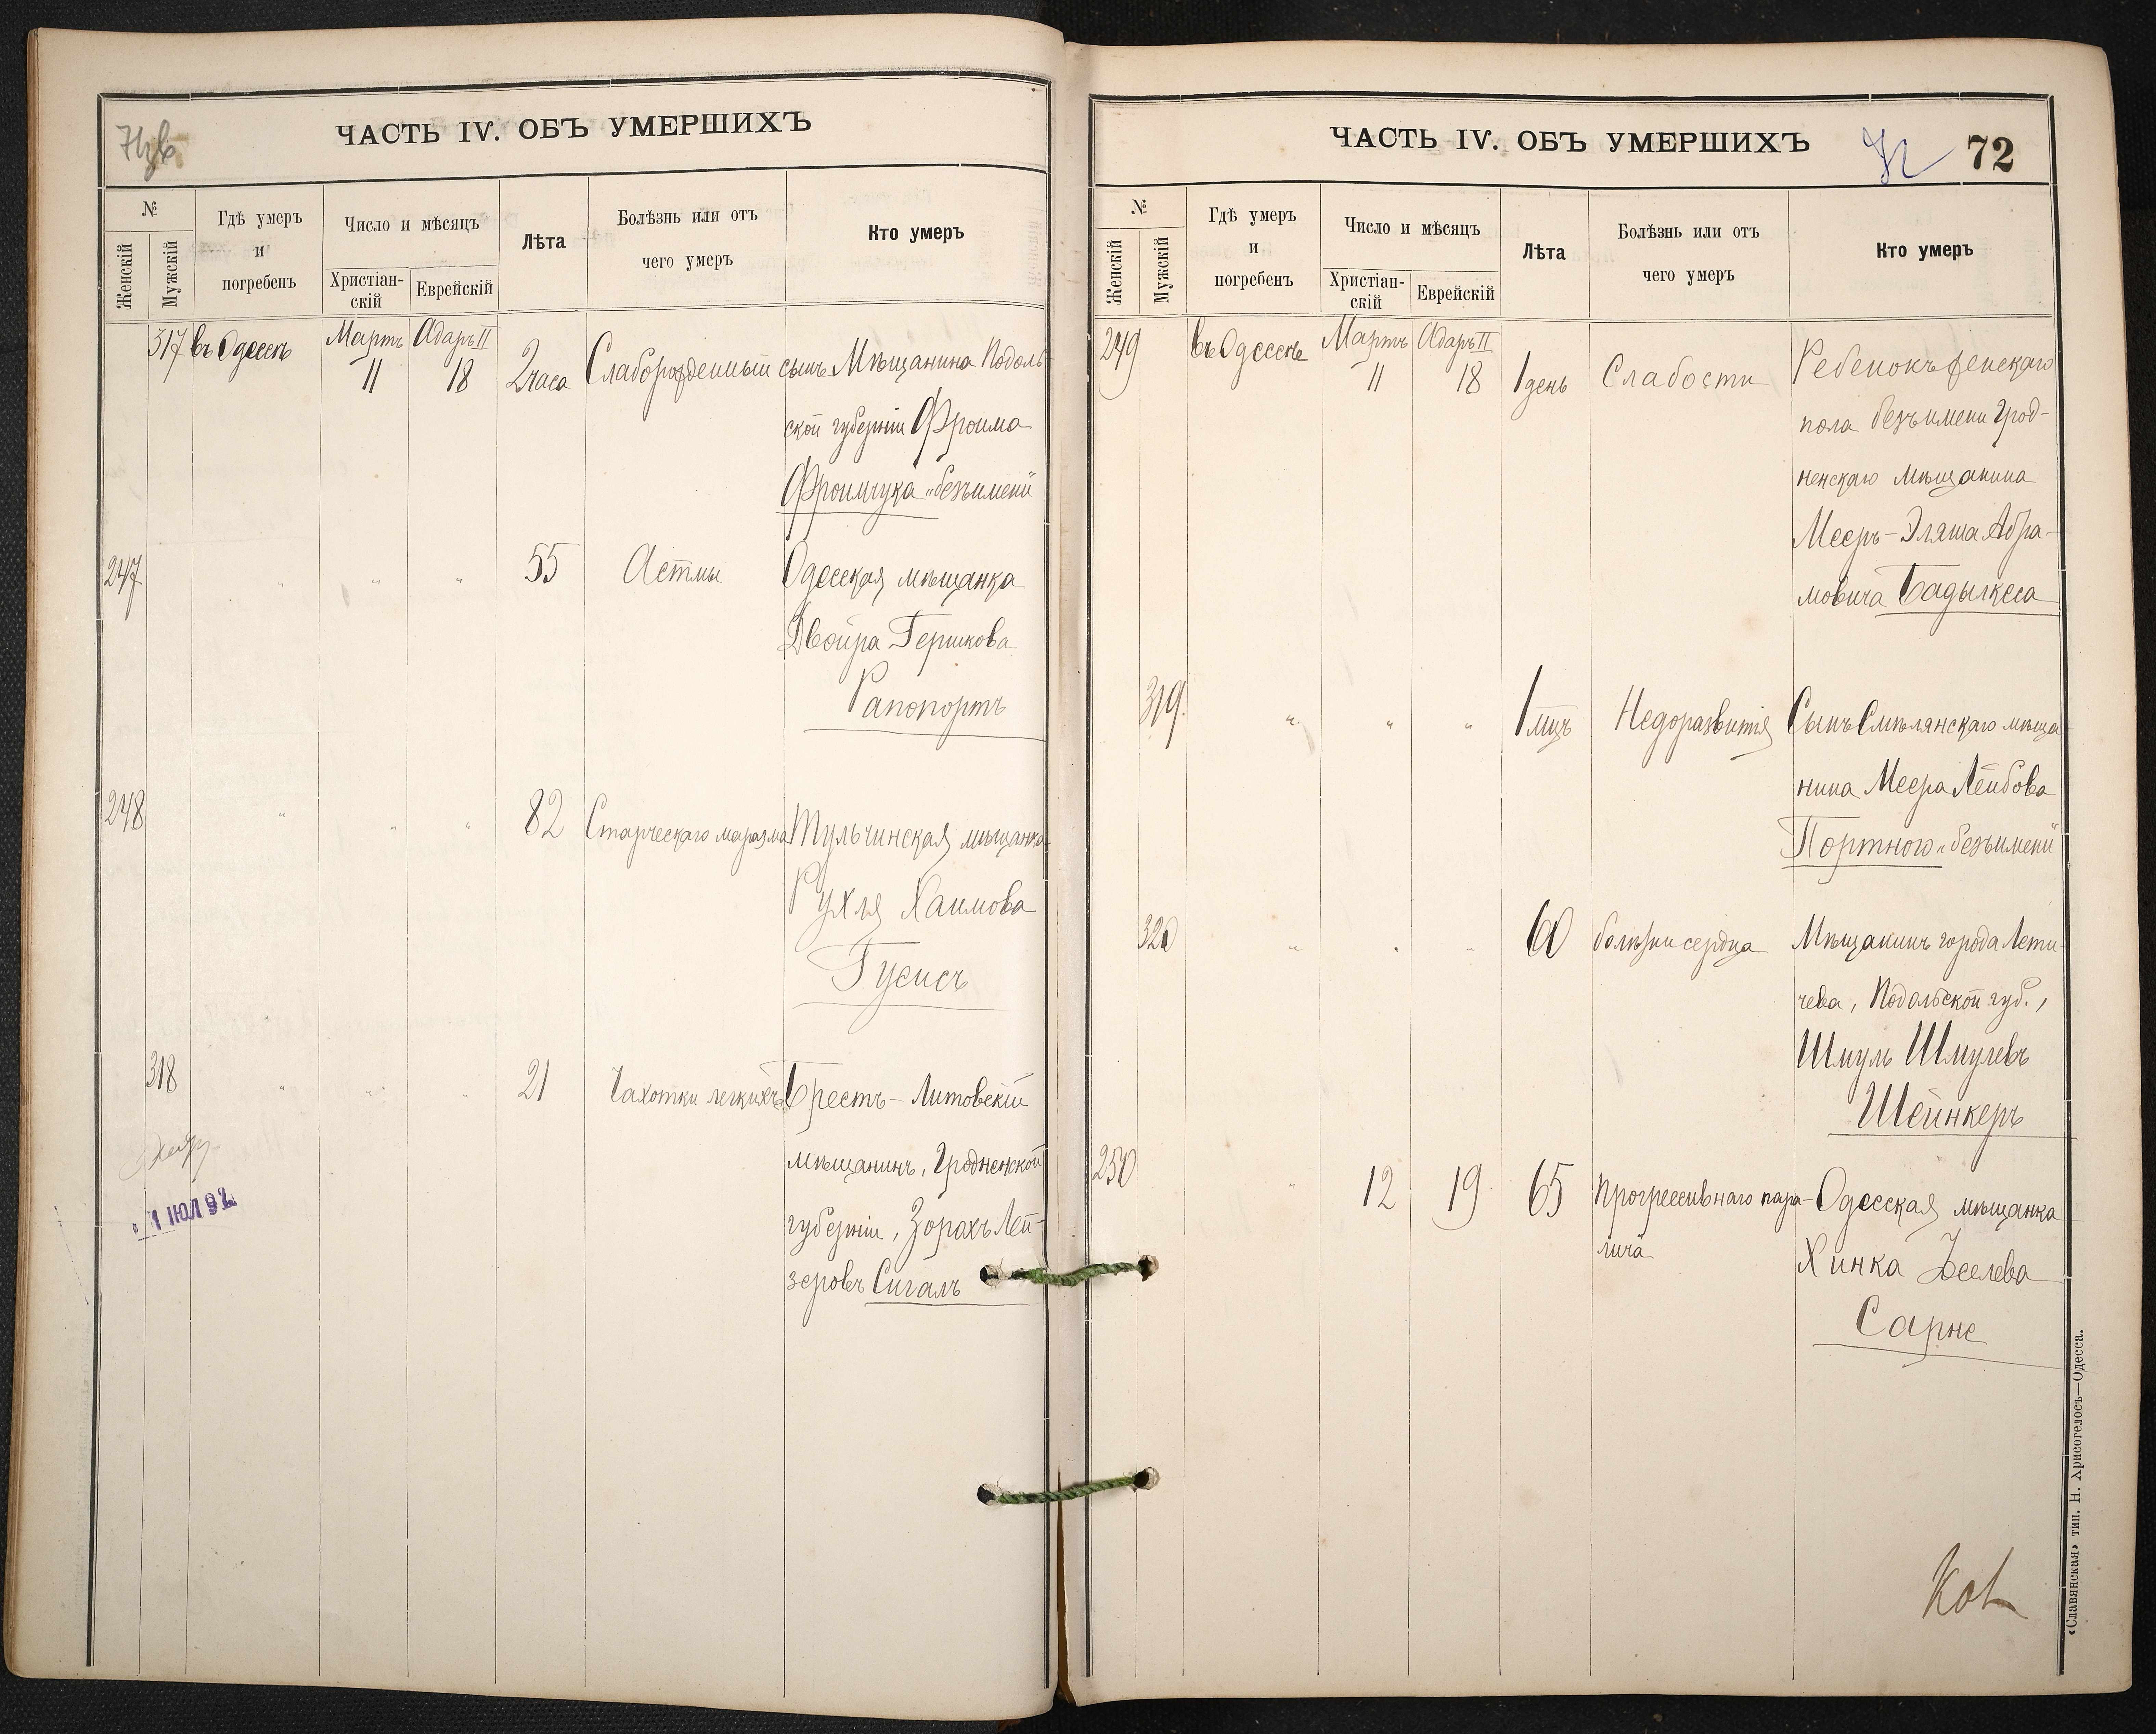 71 об
ЧАСТЬ IV. ОБЪ УМЕРШИХЪ
№
Женскій
Мужскій
Гдѣ умеръ
и
погребенъ
Число и мѣсяцъ
Христіан-
скій
Еврейскій
Лѣта
Болѣзнь или отъ
чего умеръ
Кто умеръ
317 въ Одессѣ Мартъ 11 Адаръ II 18 2 часа Слаборожденный сынъ Мѣщанина Подоль-
ской губерніи Фроима
Фроимчука „безъимени"
247 " " " 55 Астмы Одесская мѣщанка
Двойра Гершкова
Рапопортъ
248 " " " 82 Старческаго маразма Тульчинская мѣщанка
Рухля Хаимова
Гусисъ
318 " " " 21 Чахотки легкихъ Брестъ-Литовскій
мѣщанинъ, Гродненской
губерніи, Зорахъ Лей-
зеровъ Сигалъ
1 ІЮЛ 92
ЧАСТЬ IV. ОБЪ УМЕРШИХЪ
72 72
№
Женскій
Мужскій
Гдѣ умеръ
и
погребенъ
Число и мѣсяцъ
Христіан-
скій
Еврейскій
Лѣта
Болѣзнь или отъ
чего умеръ
Кто умеръ
249 въ Одессѣ Мартъ 11 Адаръ II 18 1 день Слабости Ребенокъ женскаго
пола безъимени Грод-
ненскаго мѣщанина
Мееръ-Эляша Абра-
мовича Бадылкеса
319. " " " 1 мцъ Недоразвитія Сынъ Смѣлянскаго мѣща-
нина Меера Лейбова
Портного „безъимени"
320 " " " 60 болѣзни сердца Мѣщанинъ города Лети-
чева, Подольской губ.,
Шмуль Шмулевъ
Шейнкеръ
250 " 12 19 65 Прогрессивнаго пара-
лича
Одесская мѣщанка
Хинка Іоселева
Сарне
«Славянская» тип. Н. Хрисогелосъ—Одесса.